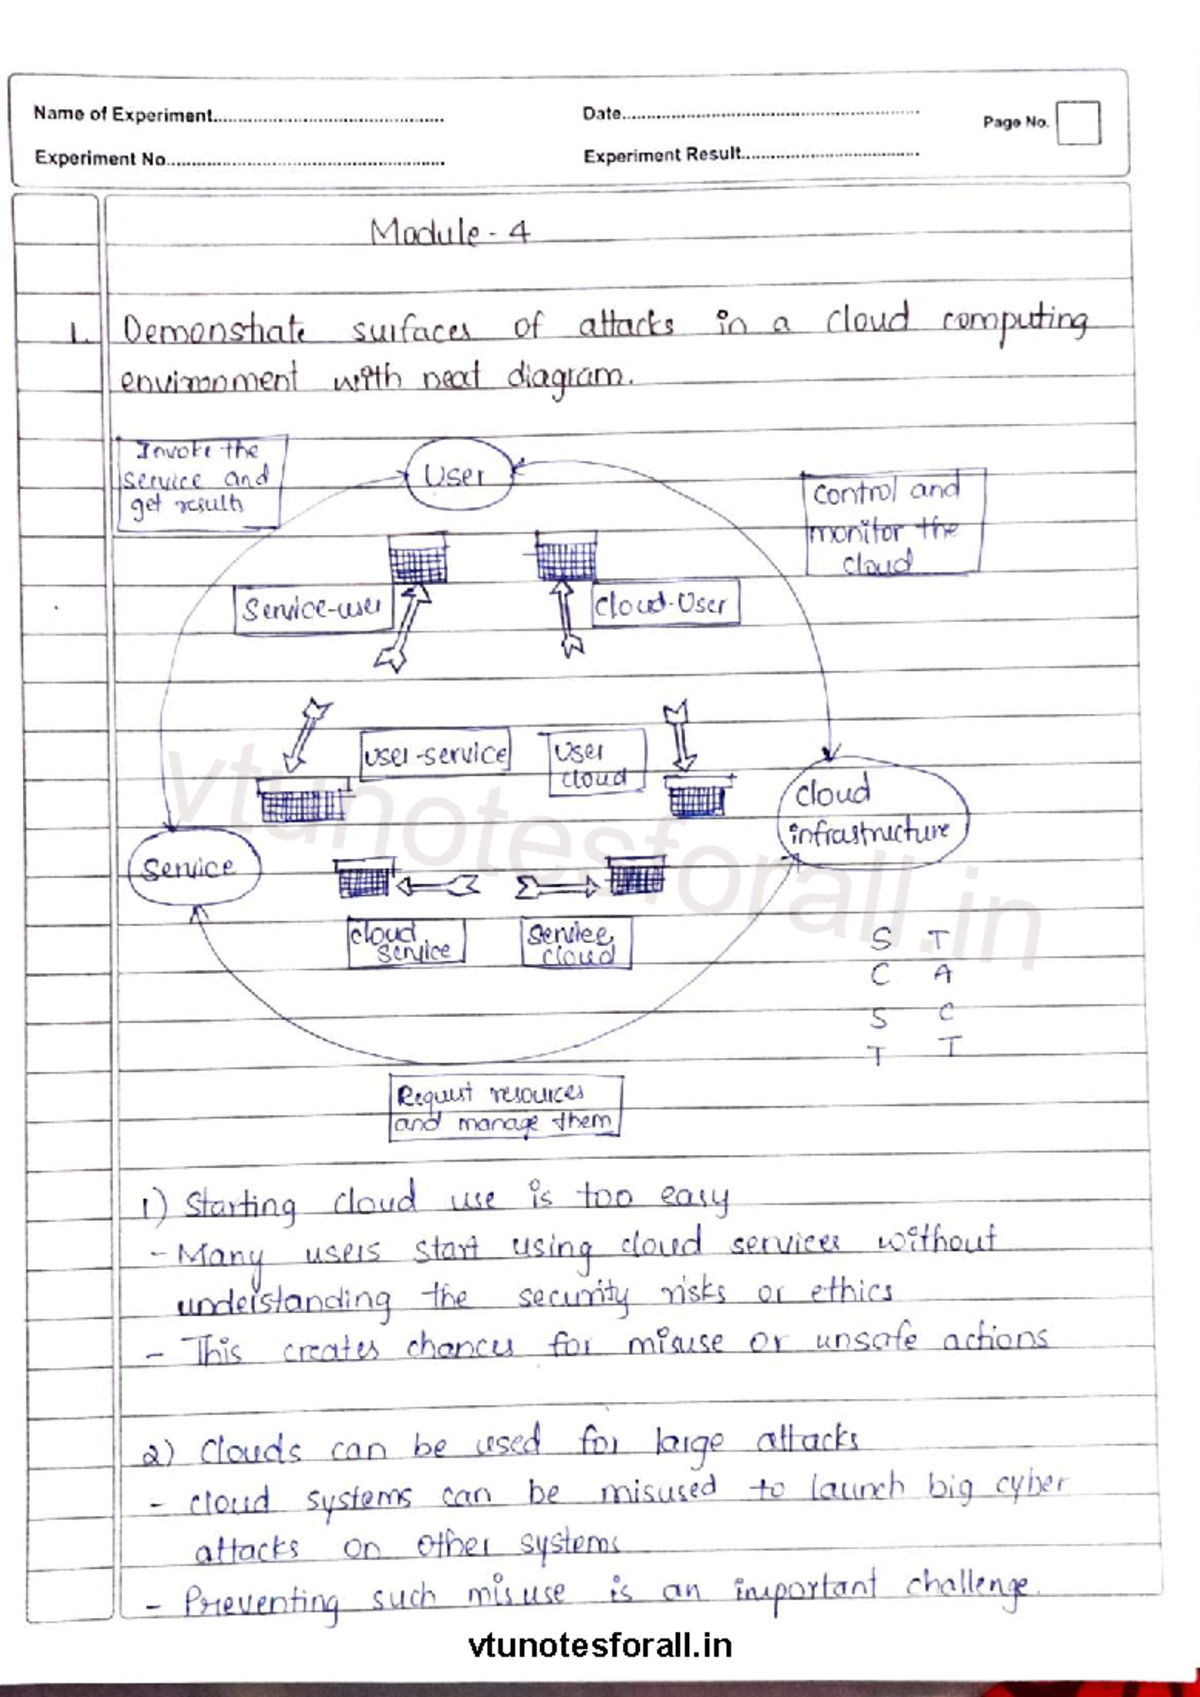 Name of Experiment
Date
Page No.
Experiment No
Experiment Result
Module - 4
1. Demonstrate surfaces of attacks in a cloud computing
environment with neat diagram.
Invoke the
service and
get results
User
Control and
monitor the
cloud
Service-user
Cloud-User
User-service
User
cloud
Cloud
infrastructure
Service
cloud
service
Service
cloud
S T
C A
S C
T T
Request resources
and manage them
1) Starting cloud use is too easy
- Many users start using cloud services without
understanding the security risks or ethics
- This creates chances for misuse or unsafe actions
2) Clouds can be used for large attacks
- cloud systems can be misused to launch big cyber
attacks on other systems
- Preventing such misuse is an important challenge.
vtunotesforall.in
vtunotesforall.in